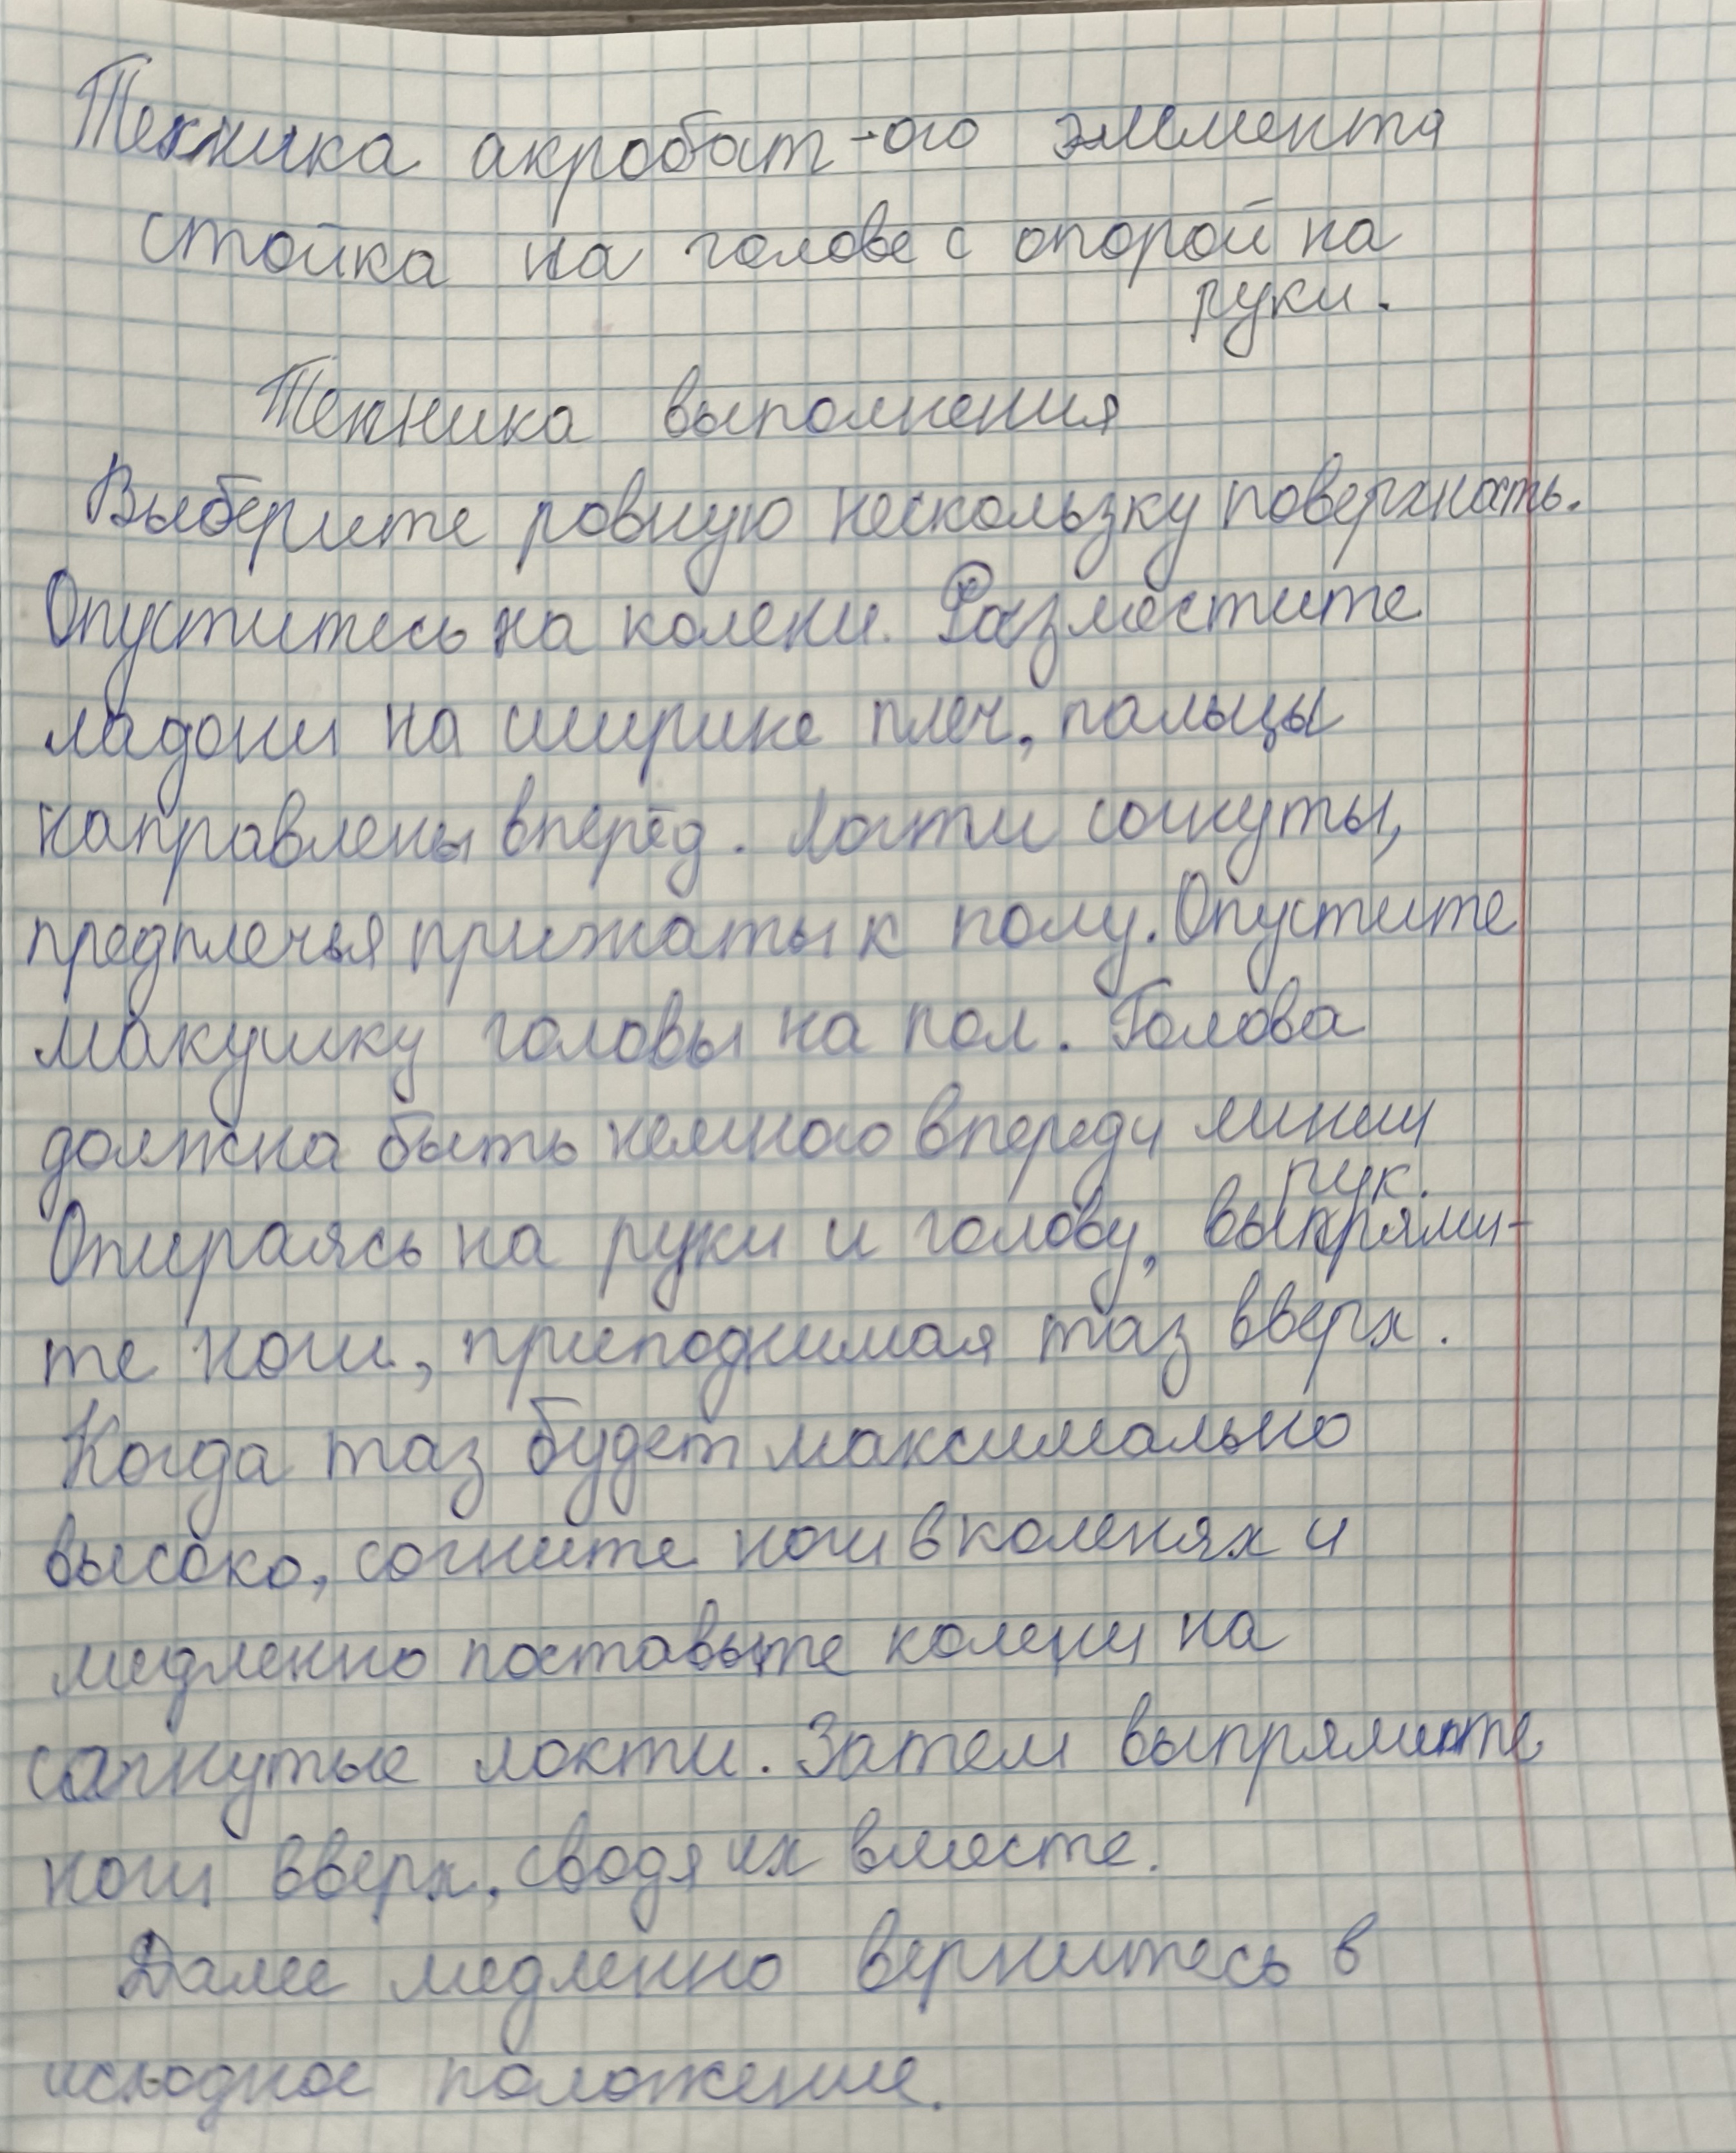 Техника акробат-ого элемента
стойка на голове с опорой на
руки.
Техника выполнения
Выберите ровную нескользку поверхность.
Опуститесь на колени. Разместите
ладони на ширине плеч, пальцы
направлены вперёд. Локти согнуты,
предплечья прижаты к полу. Опустите
макушку головы на пол. Голова
должна быть немного впереди линии
рук.
Опираясь на руки и голову, выпрями-
те ноги, приподнимая таз вверх.
Когда таз будет максимально
высоко, согните ноги в коленях и
медленно поставьте колени на
согнутые локти. Затем выпрямите
ноги вверх, сводя их вместе.
Далее медленно вернитесь в
исходное положение.